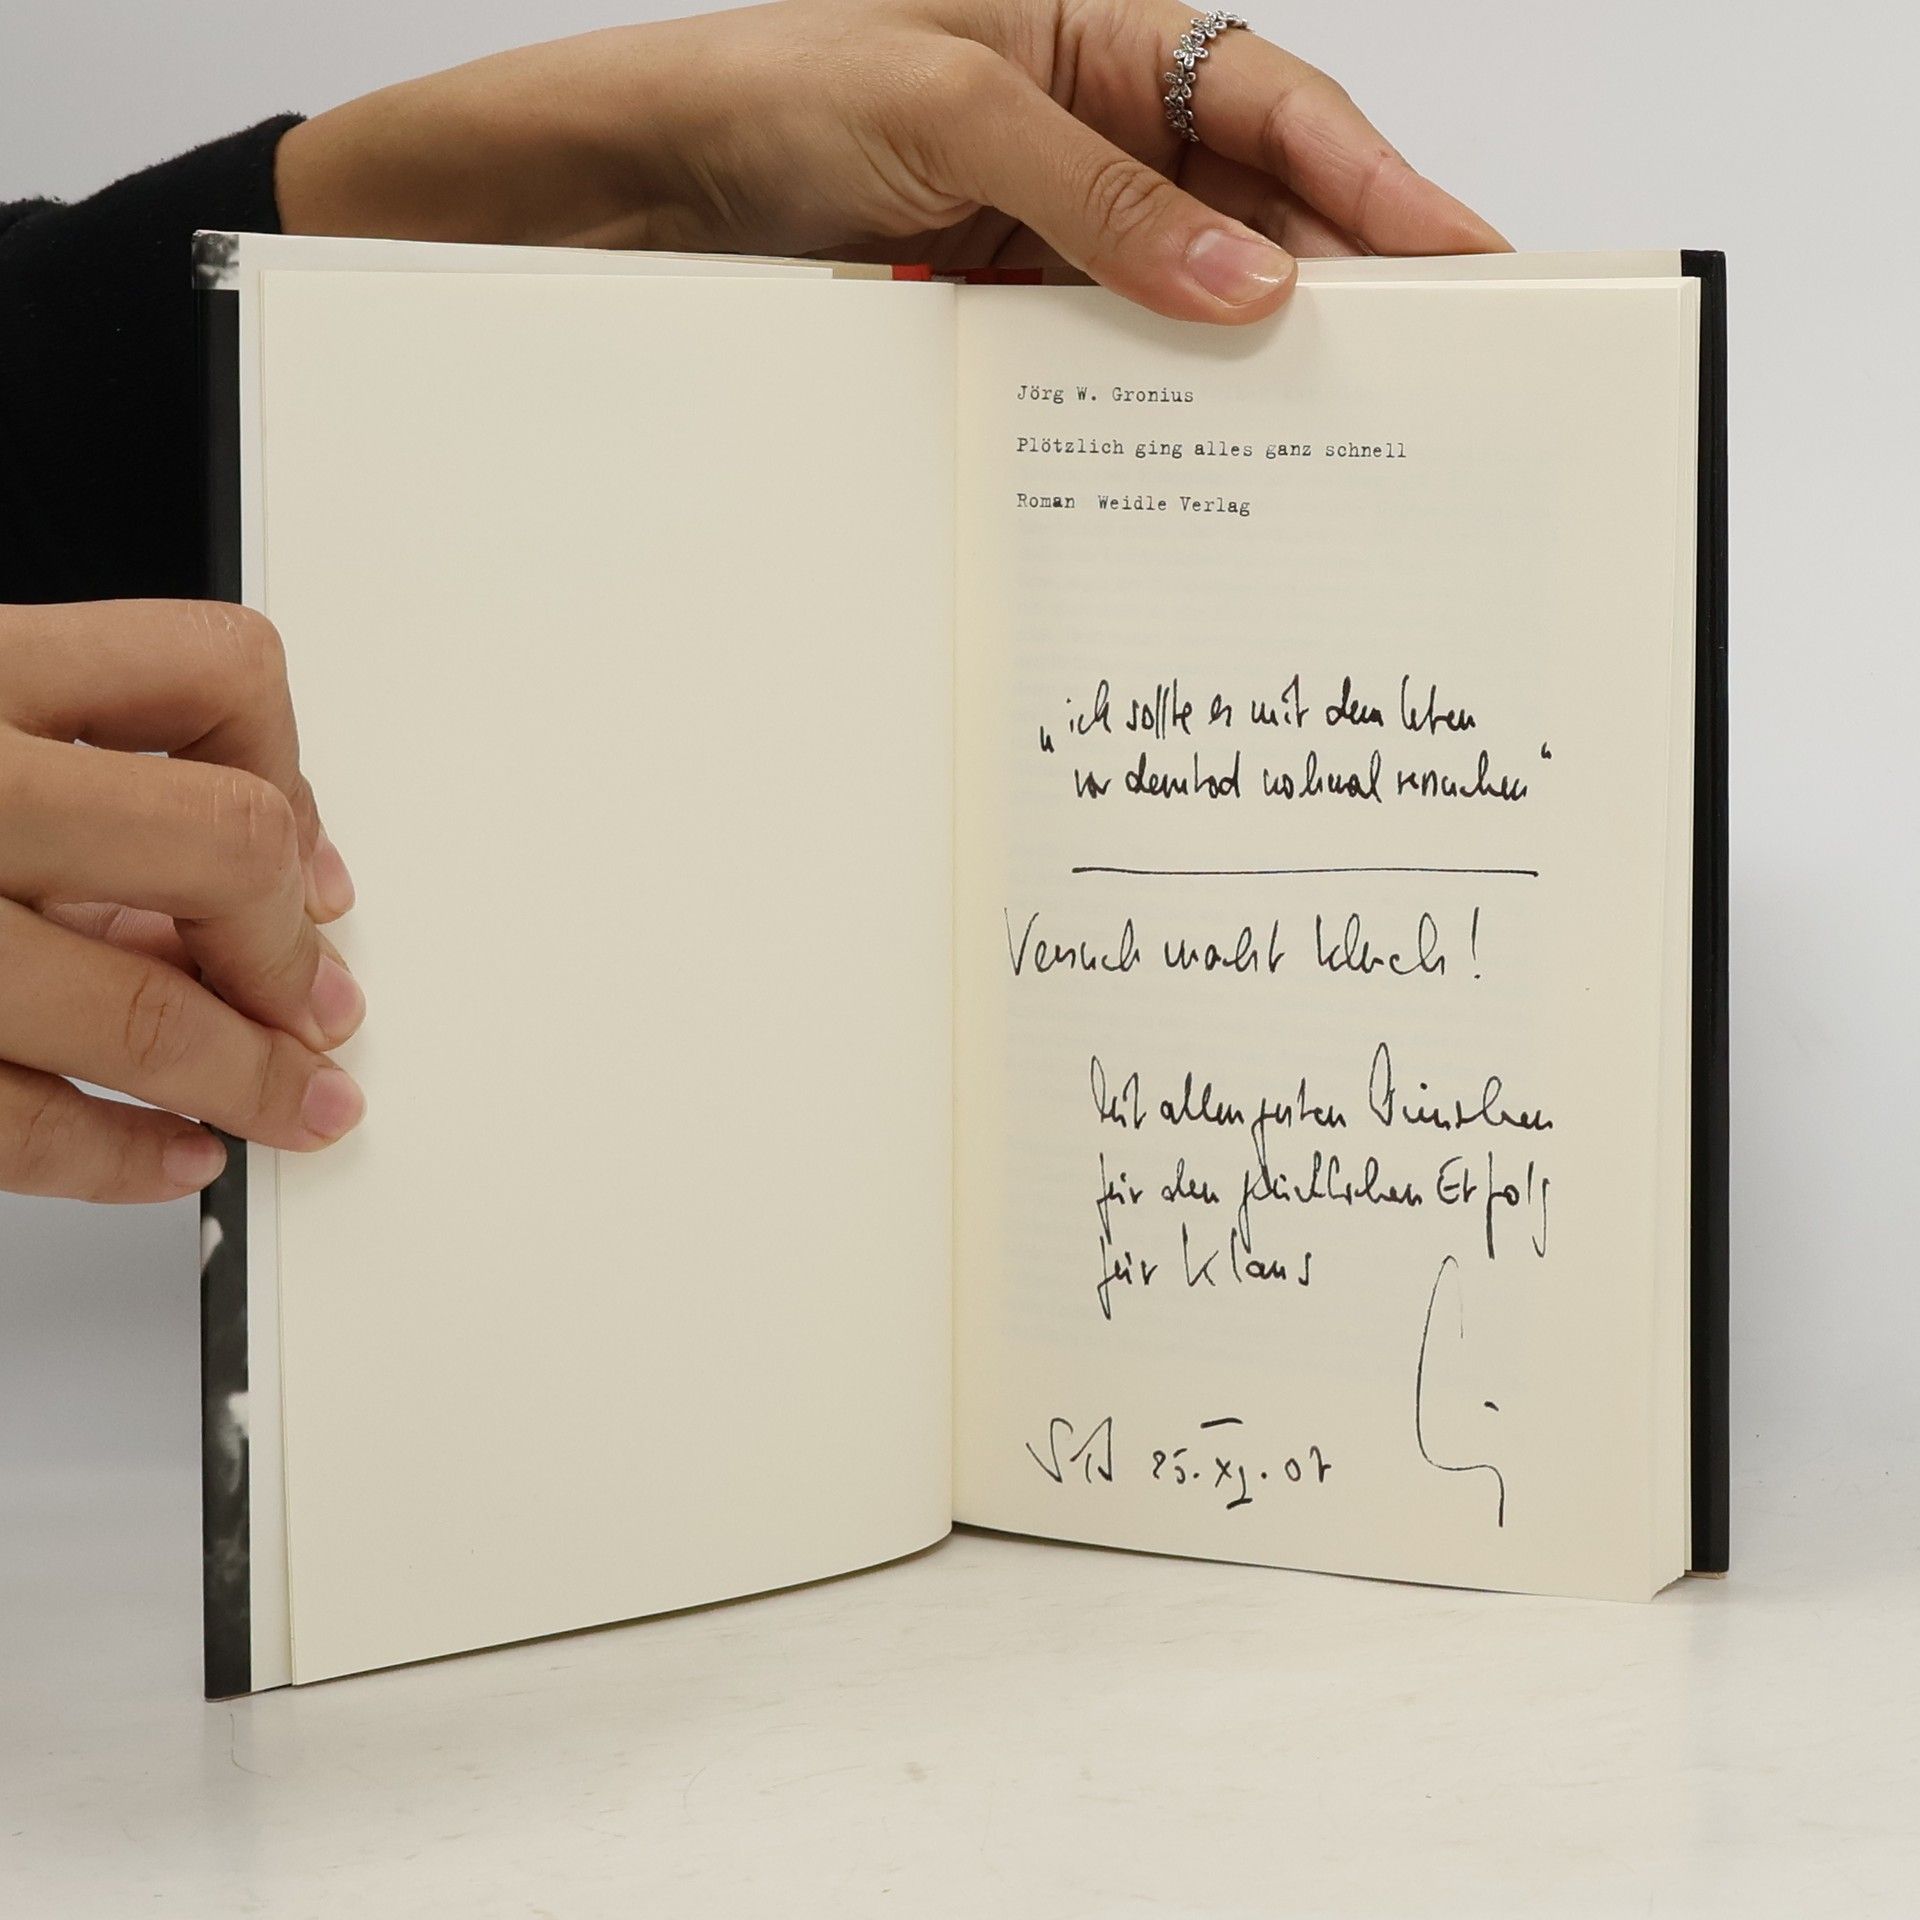 Jörg W. Gronius
Plötzlich ging alles ganz schnell
Roman Weidle Verlag
„ich sollte es mit dem leben
vor dem tod nohmal versuchen“
Versuch macht kluch!
Mit allen guten Wünschen
für den glücklichen Erfolg
für Klaus
25. XI. 07